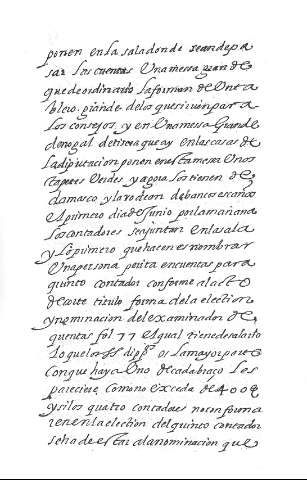 ponen en la sala donde se an de pa
sar las cuentas Una messa gran de
que de ordinario la forman de Un ta
blero grande de los que siruin para
los consejos, y en Una messa Grande
de nogal de tixera que ay en las casas de
la diputacion ponen en esta messa Unos
tapetes Verdes y agora los tienen de
damasco y la rodean de bancos escaños
el primero dia de Junio por la mañana
los contadores se ajuntan en la sala
y lo primero que hacen es nombrar
Una persona perita en cuentas para
quinto contador conforme al acto
de corte titulo forma de la election
y nominacion del examinador de
quentas fol 77 el qual tiene de salario
lo que los SS dipp.os o la mayor parte
con que haya Uno de cada braço les
pareciere como no exceda de 400 R
y si los quatro contadores no conforma
ren en la election del quinto contador
se ha de estar a la nominacion que